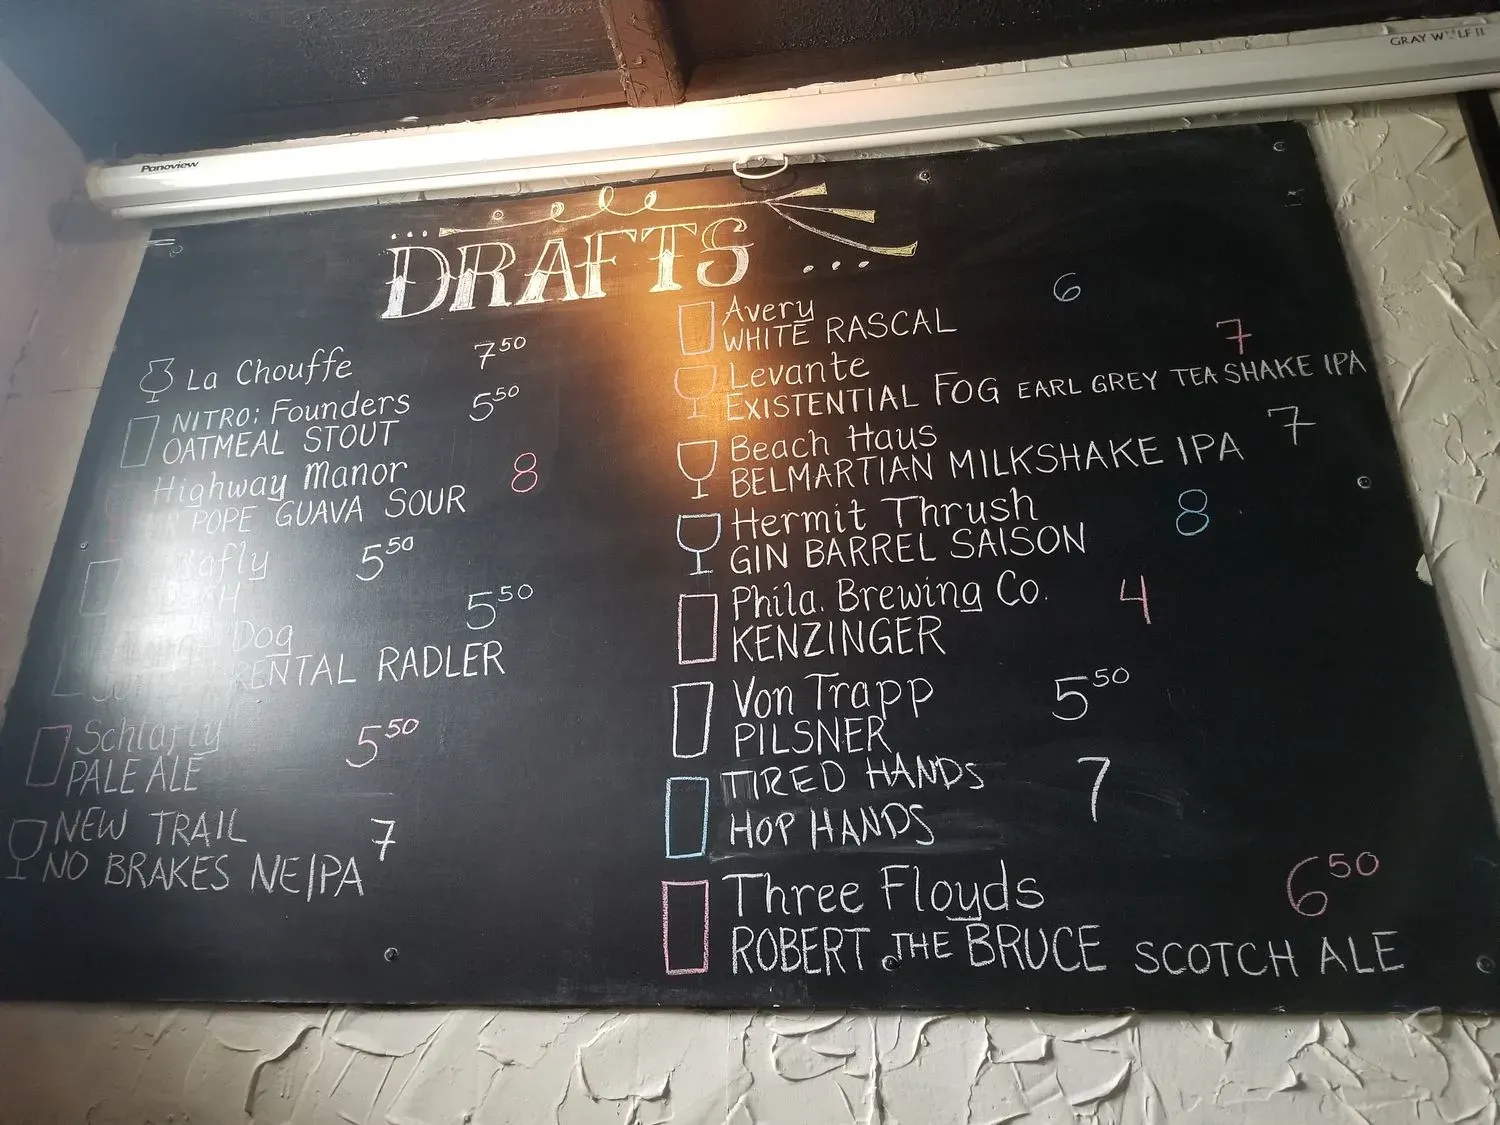 GRAY WOLF II
Panoview
DRAFTS
La Chouffe 7 50
NITRO: Founders 5 50
OATMEAL STOUT
Highway Manor 8
POPE GUAVA SOUR
5 50
Dog 5 50
RADLER
Schlafly 5 50
PALE ALE
NEW TRAIL 7
NO BRAKES NEIPA
Avery 6
WHITE RASCAL
Levante 7
EXISTENTIAL FOG EARL GREY TEA SHAKE IPA
Beach Haus 7
BELMARTIAN MILKSHAKE IPA
Hermit Thrush 8
GIN BARREL SAISON
Phila. Brewing Co. 4
KENZINGER
Von Trapp 5 50
PILSNER
TIRED HANDS 7
HOP HANDS
Three Floyds 6 50
ROBERT THE BRUCE SCOTCH ALE